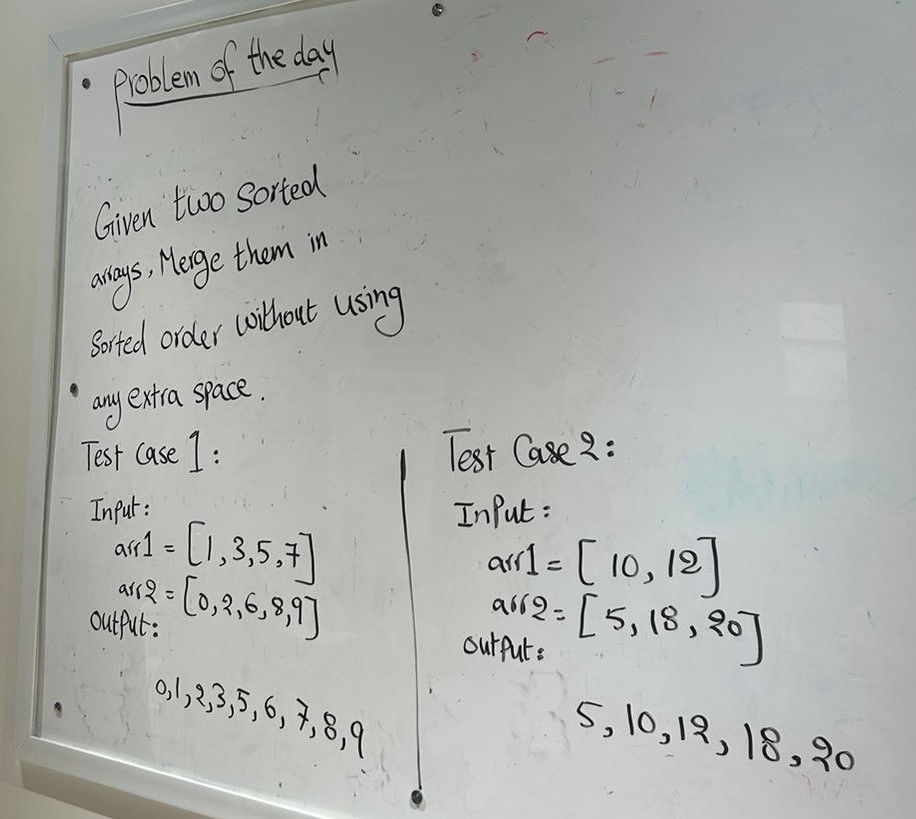 Problem of the day
Given two sorted
arrays, Merge them in
Sorted order without using
any extra space.
Test Case 1:
Input:
arr1 = [1,3,5,7]
arr2 = [0,2,6,8,9]
Output:
0,1,2,3,5,6,7,8,9
Test Case 2:
Input:
arr1 = [10,12]
arr2 = [5,18,20]
output:
5,10,12,18,20